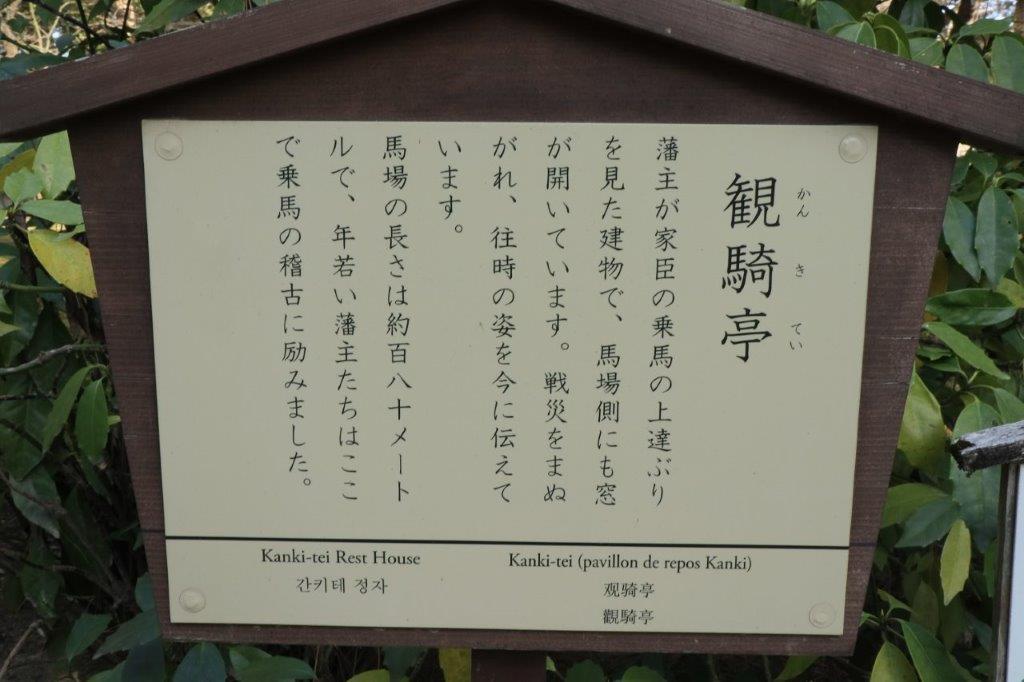 観騎亭
かんきてい
藩主が家臣の乗馬の上達ぶり
を見た建物で、馬場側にも窓
が開いています。戦災をまぬ
がれ、往時の姿を今に伝えて
います。
馬場の長さは約百八十メート
ルで、年若い藩主たちはここ
で乗馬の稽古に励みました。
Kanki-tei Rest House
간키테 정자
Kanki-tei (pavillon de repos Kanki)
观骑亭
觀騎亭